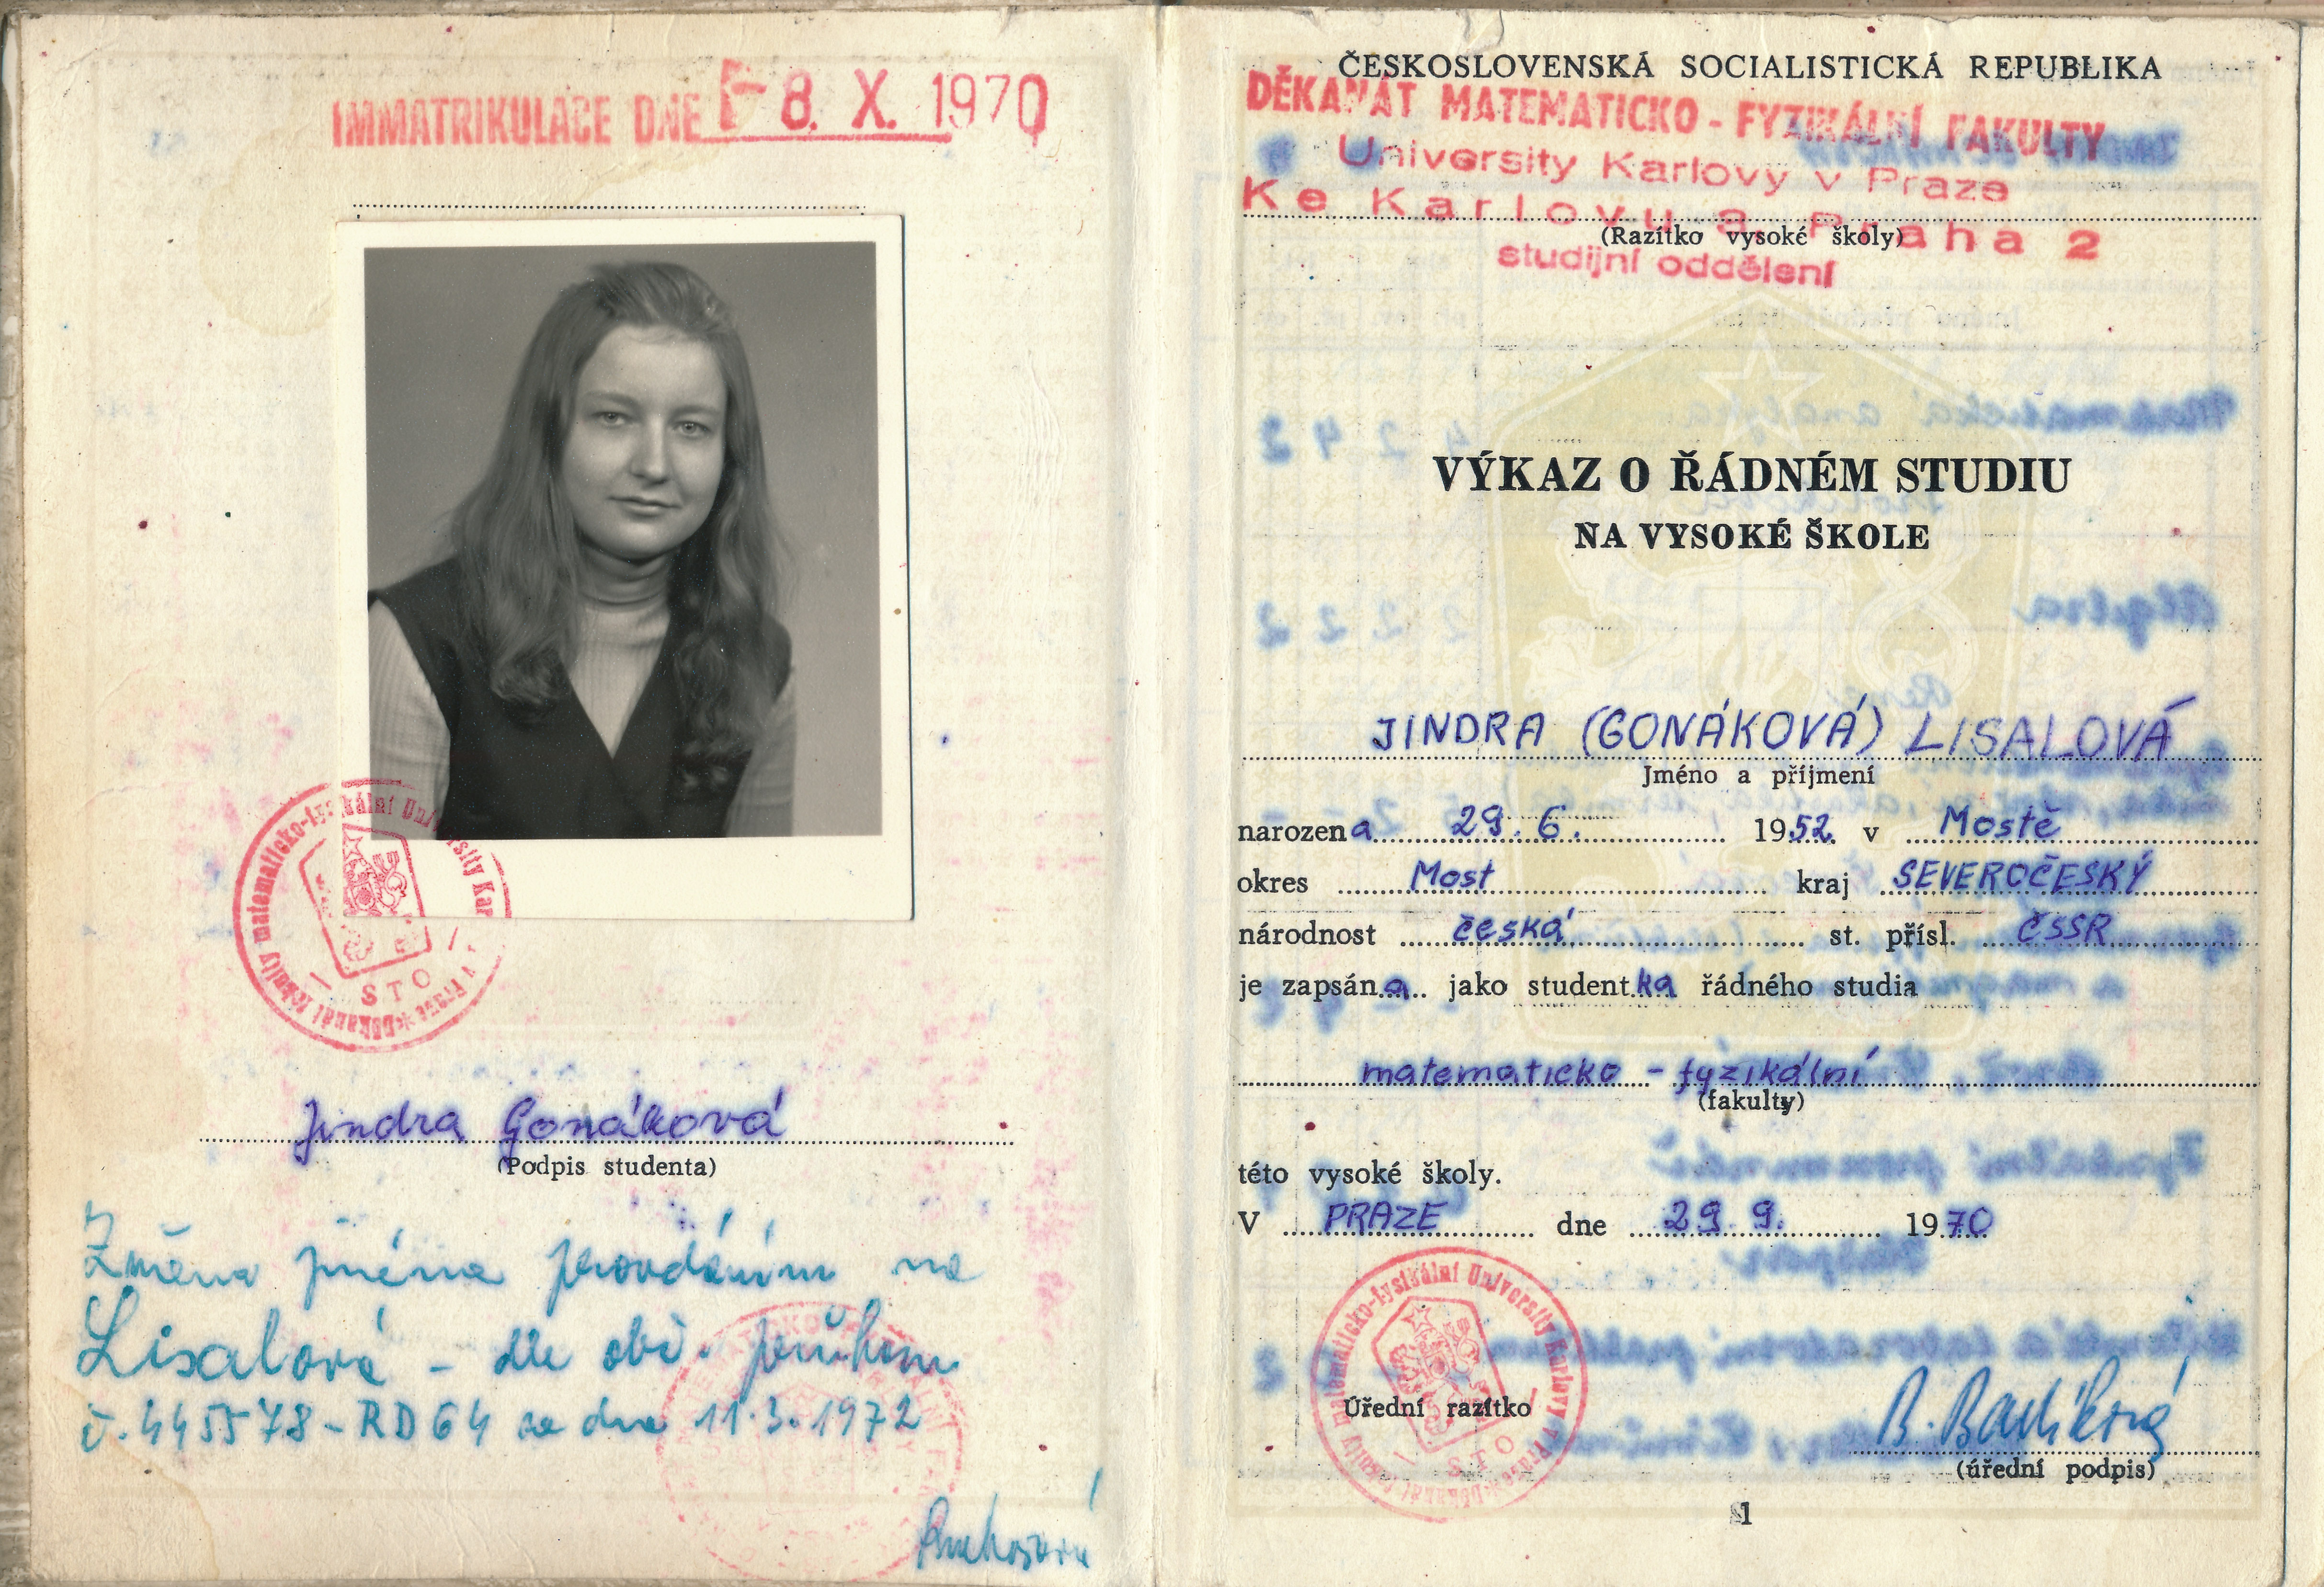 IMMATRIKULACE DNE - 8. X. 1970
matematicko-fysikální University Karlovy v Praze * Děkanát fakulty
STO
Jindra Gonáková
(Podpis studenta)
Změna jména provdáním na
Lisalová - dle obč. průkazu
č. 445578-RD64 ze dne 11.3.1972
ČESKOSLOVENSKÁ SOCIALISTICKÁ REPUBLIKA
DĚKANÁT MATEMATICKO - FYZIKÁLNÍ FAKULTY
University Karlovy v Praze
Ke Karlovu 3, Praha 2
(Razítko vysoké školy)
studijní oddělení
VÝKAZ O ŘÁDNÉM STUDIU
NA VYSOKÉ ŠKOLE
JINDRA (GONÁKOVÁ) LISALOVÁ
Jméno a příjmení
narozena 29. 6. 1952 v Mostě
okres Most kraj SEVEROČESKÝ
národnost česká st. přísl. ČSSR
je zapsána jako studentka řádného studia
matematicko - fyzikální
(fakulty)
této vysoké školy.
V PRAZE dne 29. 9. 1970
matematicko-fysikální University Karlovy v Praze * Děkanát fakulty
STO
Úřední razítko
(úřední podpis)
1